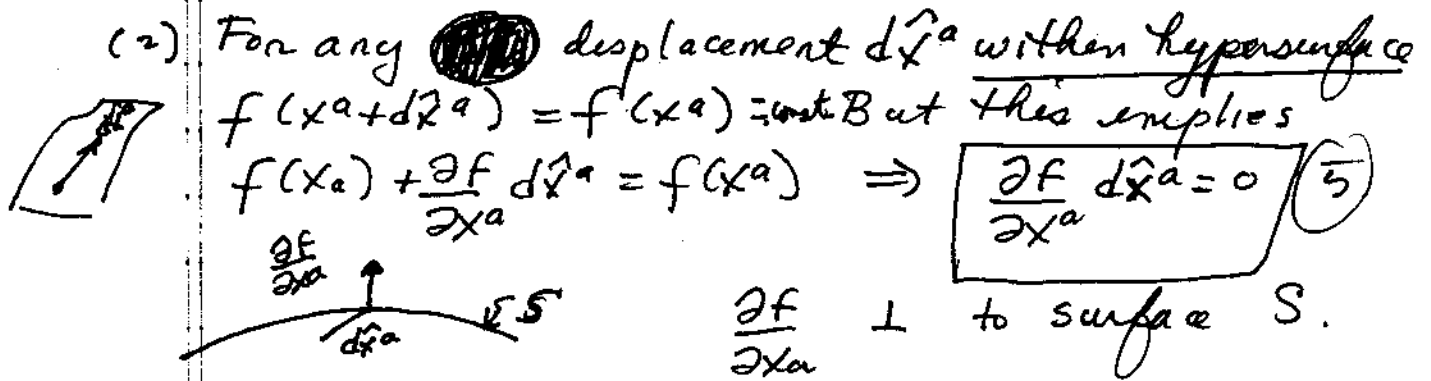 (2) For any displacement dx̂ᵃ within hypersurface
f(xᵃ+dx̂ᵃ) = f(xᵃ) = const. But this implies
f(xₐ) + ∂f/∂xᵃ dx̂ᵃ = f(xᵃ) ⇒ ∂f/∂xᵃ dx̂ᵃ = 0 (5)
∂f/∂xᵃ
S
dx̂ᵃ
∂f/∂xₐ ⊥ to surface S.